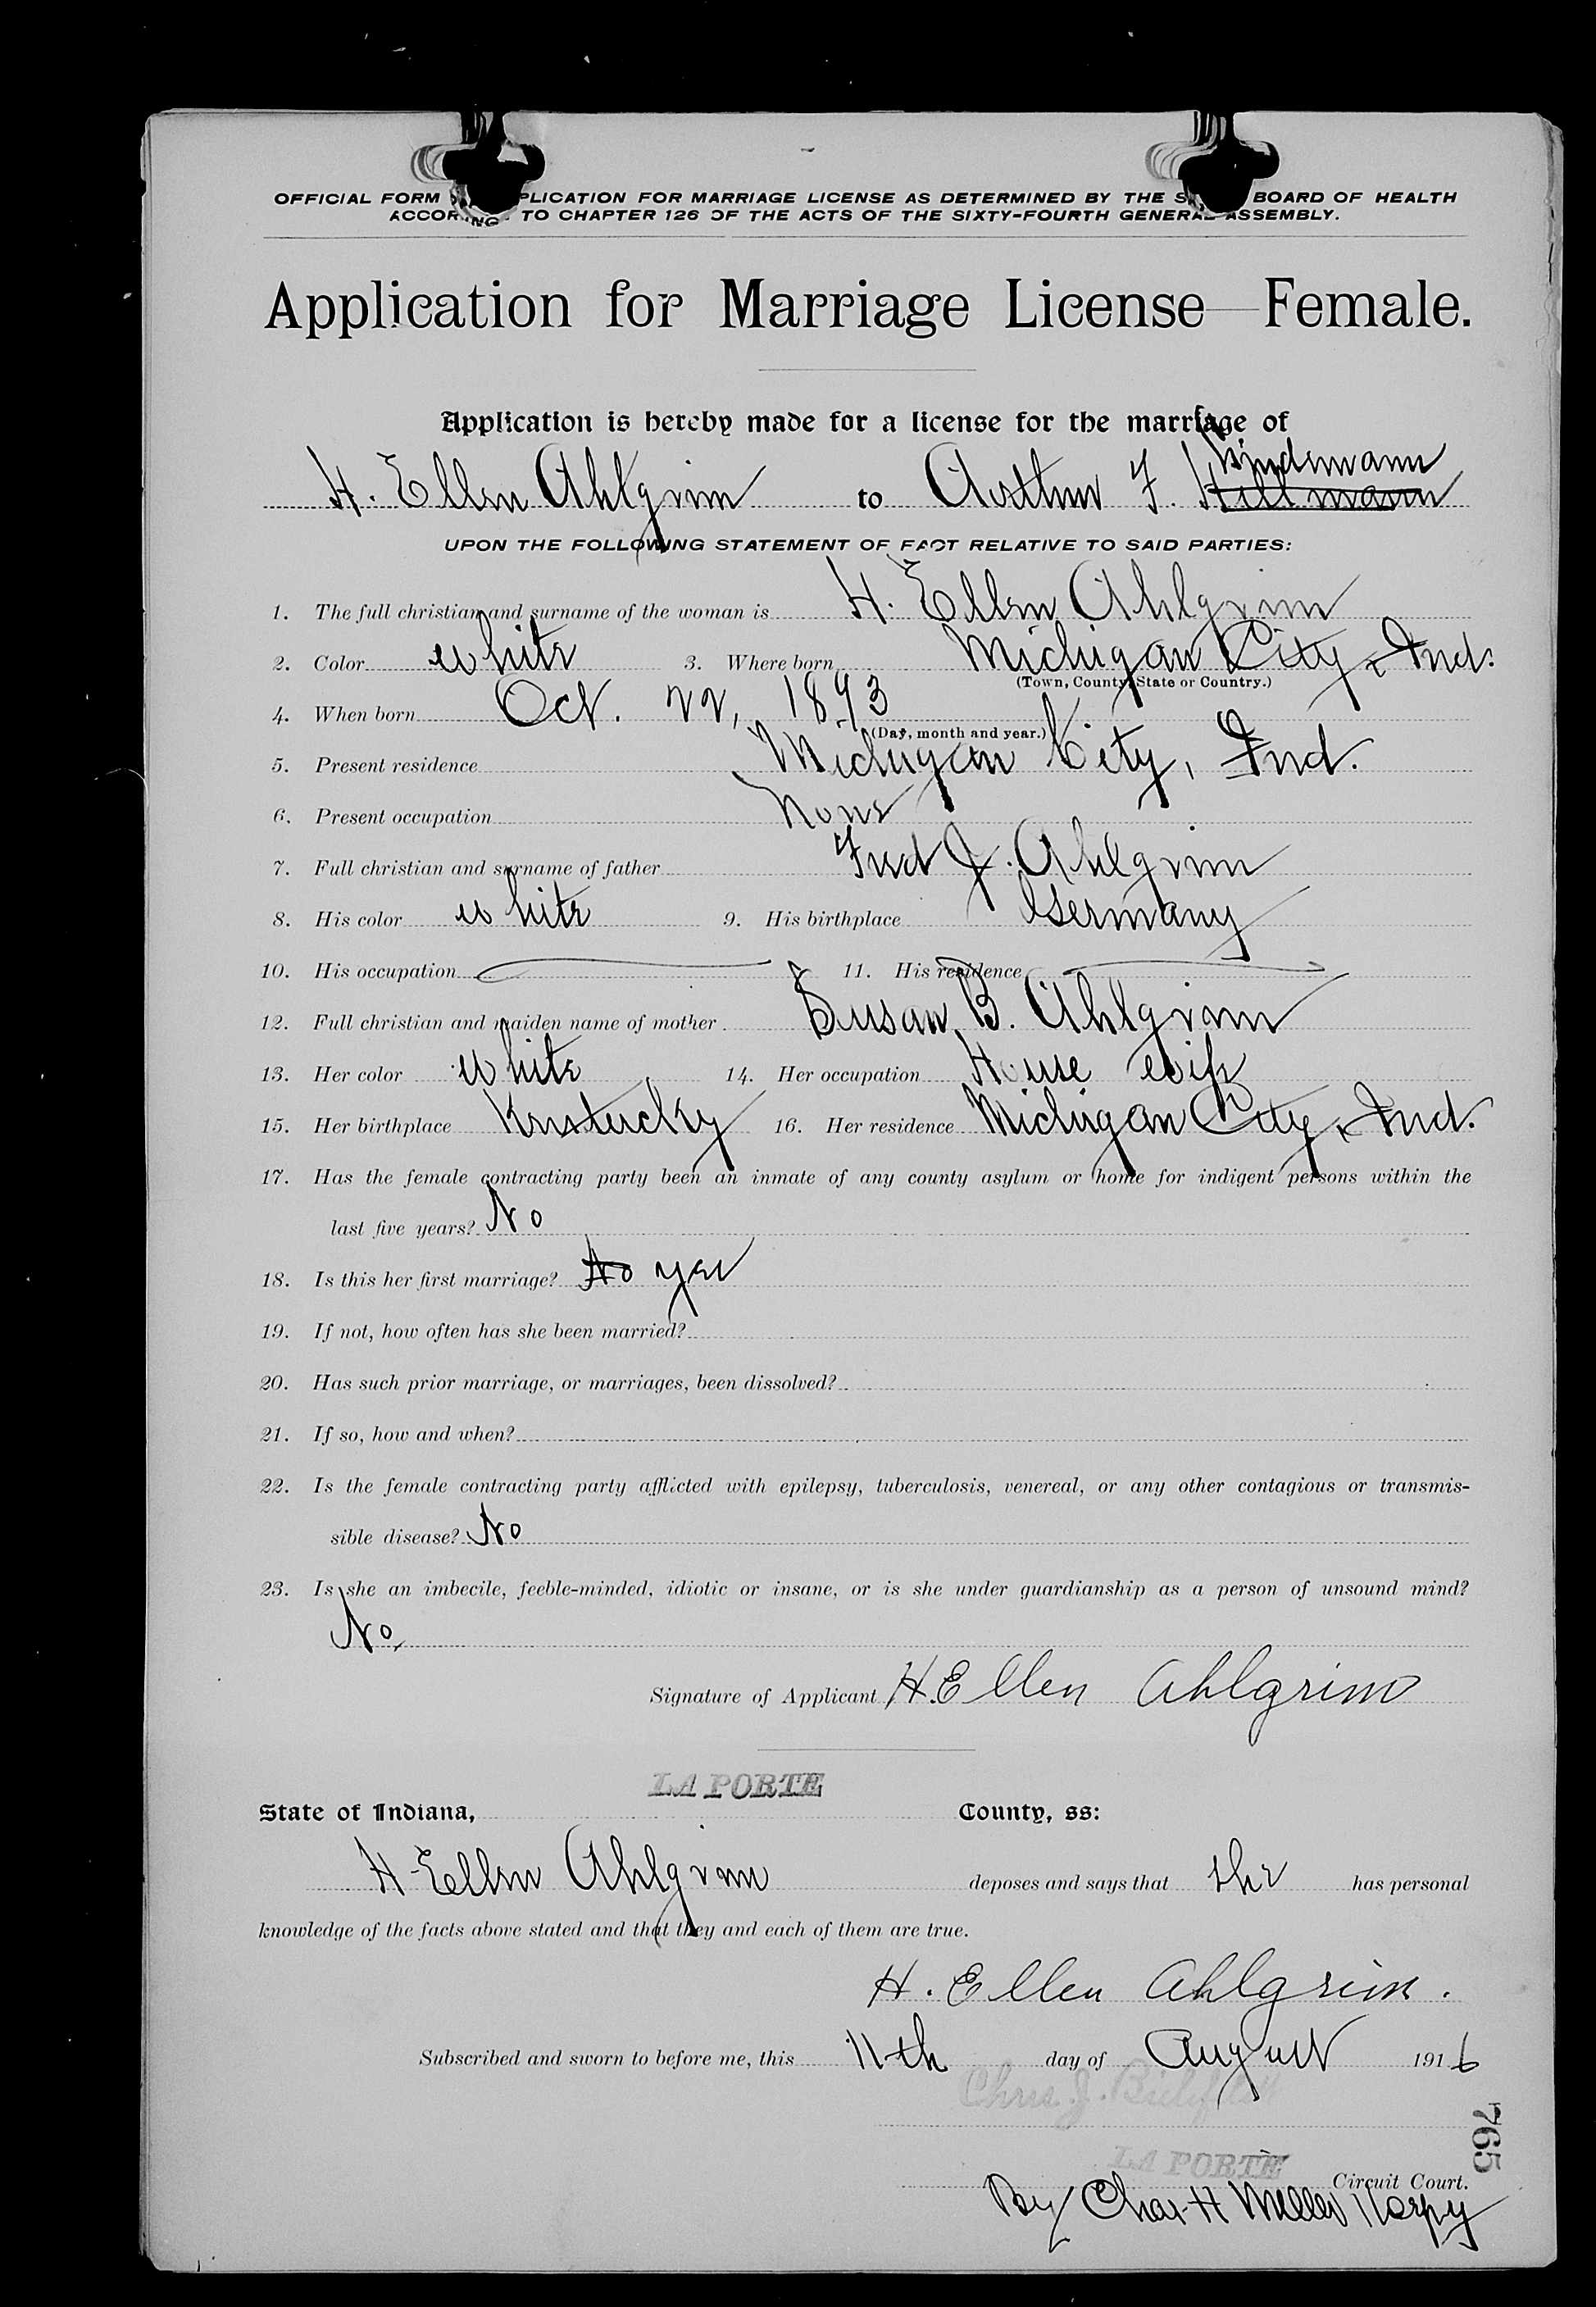 OFFICIAL FORM PLICATION FOR MARRIAGE LICENSE AS DETERMINED BY THE BOARD OF HEALTH
ACCORDING TO CHAPTER 126 OF THE ACTS OF THE SIXTY-FOURTH GENERAL ASSEMBLY.
Application for Marriage License—Female.
Application is hereby made for a license for the marriage of
Lindemann
H. Ellen Ahlgrim to Arthur F. Hillmann
UPON THE FOLLOWING STATEMENT OF FACT RELATIVE TO SAID PARTIES:
1. The full christian and surname of the woman is H. Ellen Ahlgrim
2. Color white 3. Where born Michigan City, Ind.
(Town, County, State or Country.)
4. When born Oct. 22, 1893
(Day, month and year.)
5. Present residence Michigan City, Ind.
6. Present occupation None
7. Full christian and surname of father Fred J. Ahlgrim
8. His color white 9. His birthplace Germany
10. His occupation 11. His residence
12. Full christian and maiden name of mother Susan B. Ahlgrim
13. Her color white 14. Her occupation House wife
15. Her birthplace Kentucky 16. Her residence Michigan City, Ind.
17. Has the female contracting party been an inmate of any county asylum or home for indigent persons within the
last five years? No
18. Is this her first marriage? No yes
19. If not, how often has she been married?
20. Has such prior marriage, or marriages, been dissolved?
21. If so, how and when?
22. Is the female contracting party afflicted with epilepsy, tuberculosis, venereal, or any other contagious or transmis-
sible disease? No
23. Is she an imbecile, feeble-minded, idiotic or insane, or is she under guardianship as a person of unsound mind?
No.
Signature of Applicant H. Ellen Ahlgrim
LA PORTE
State of Indiana, County, ss:
H Ellen Ahlgrim deposes and says that she has personal
knowledge of the facts above stated and that they and each of them are true.
H. Ellen Ahlgrim.
Subscribed and sworn to before me, this 11th day of August 1916
Chris. J.
765
LA PORTE
Circuit Court.
By Chas H Miller